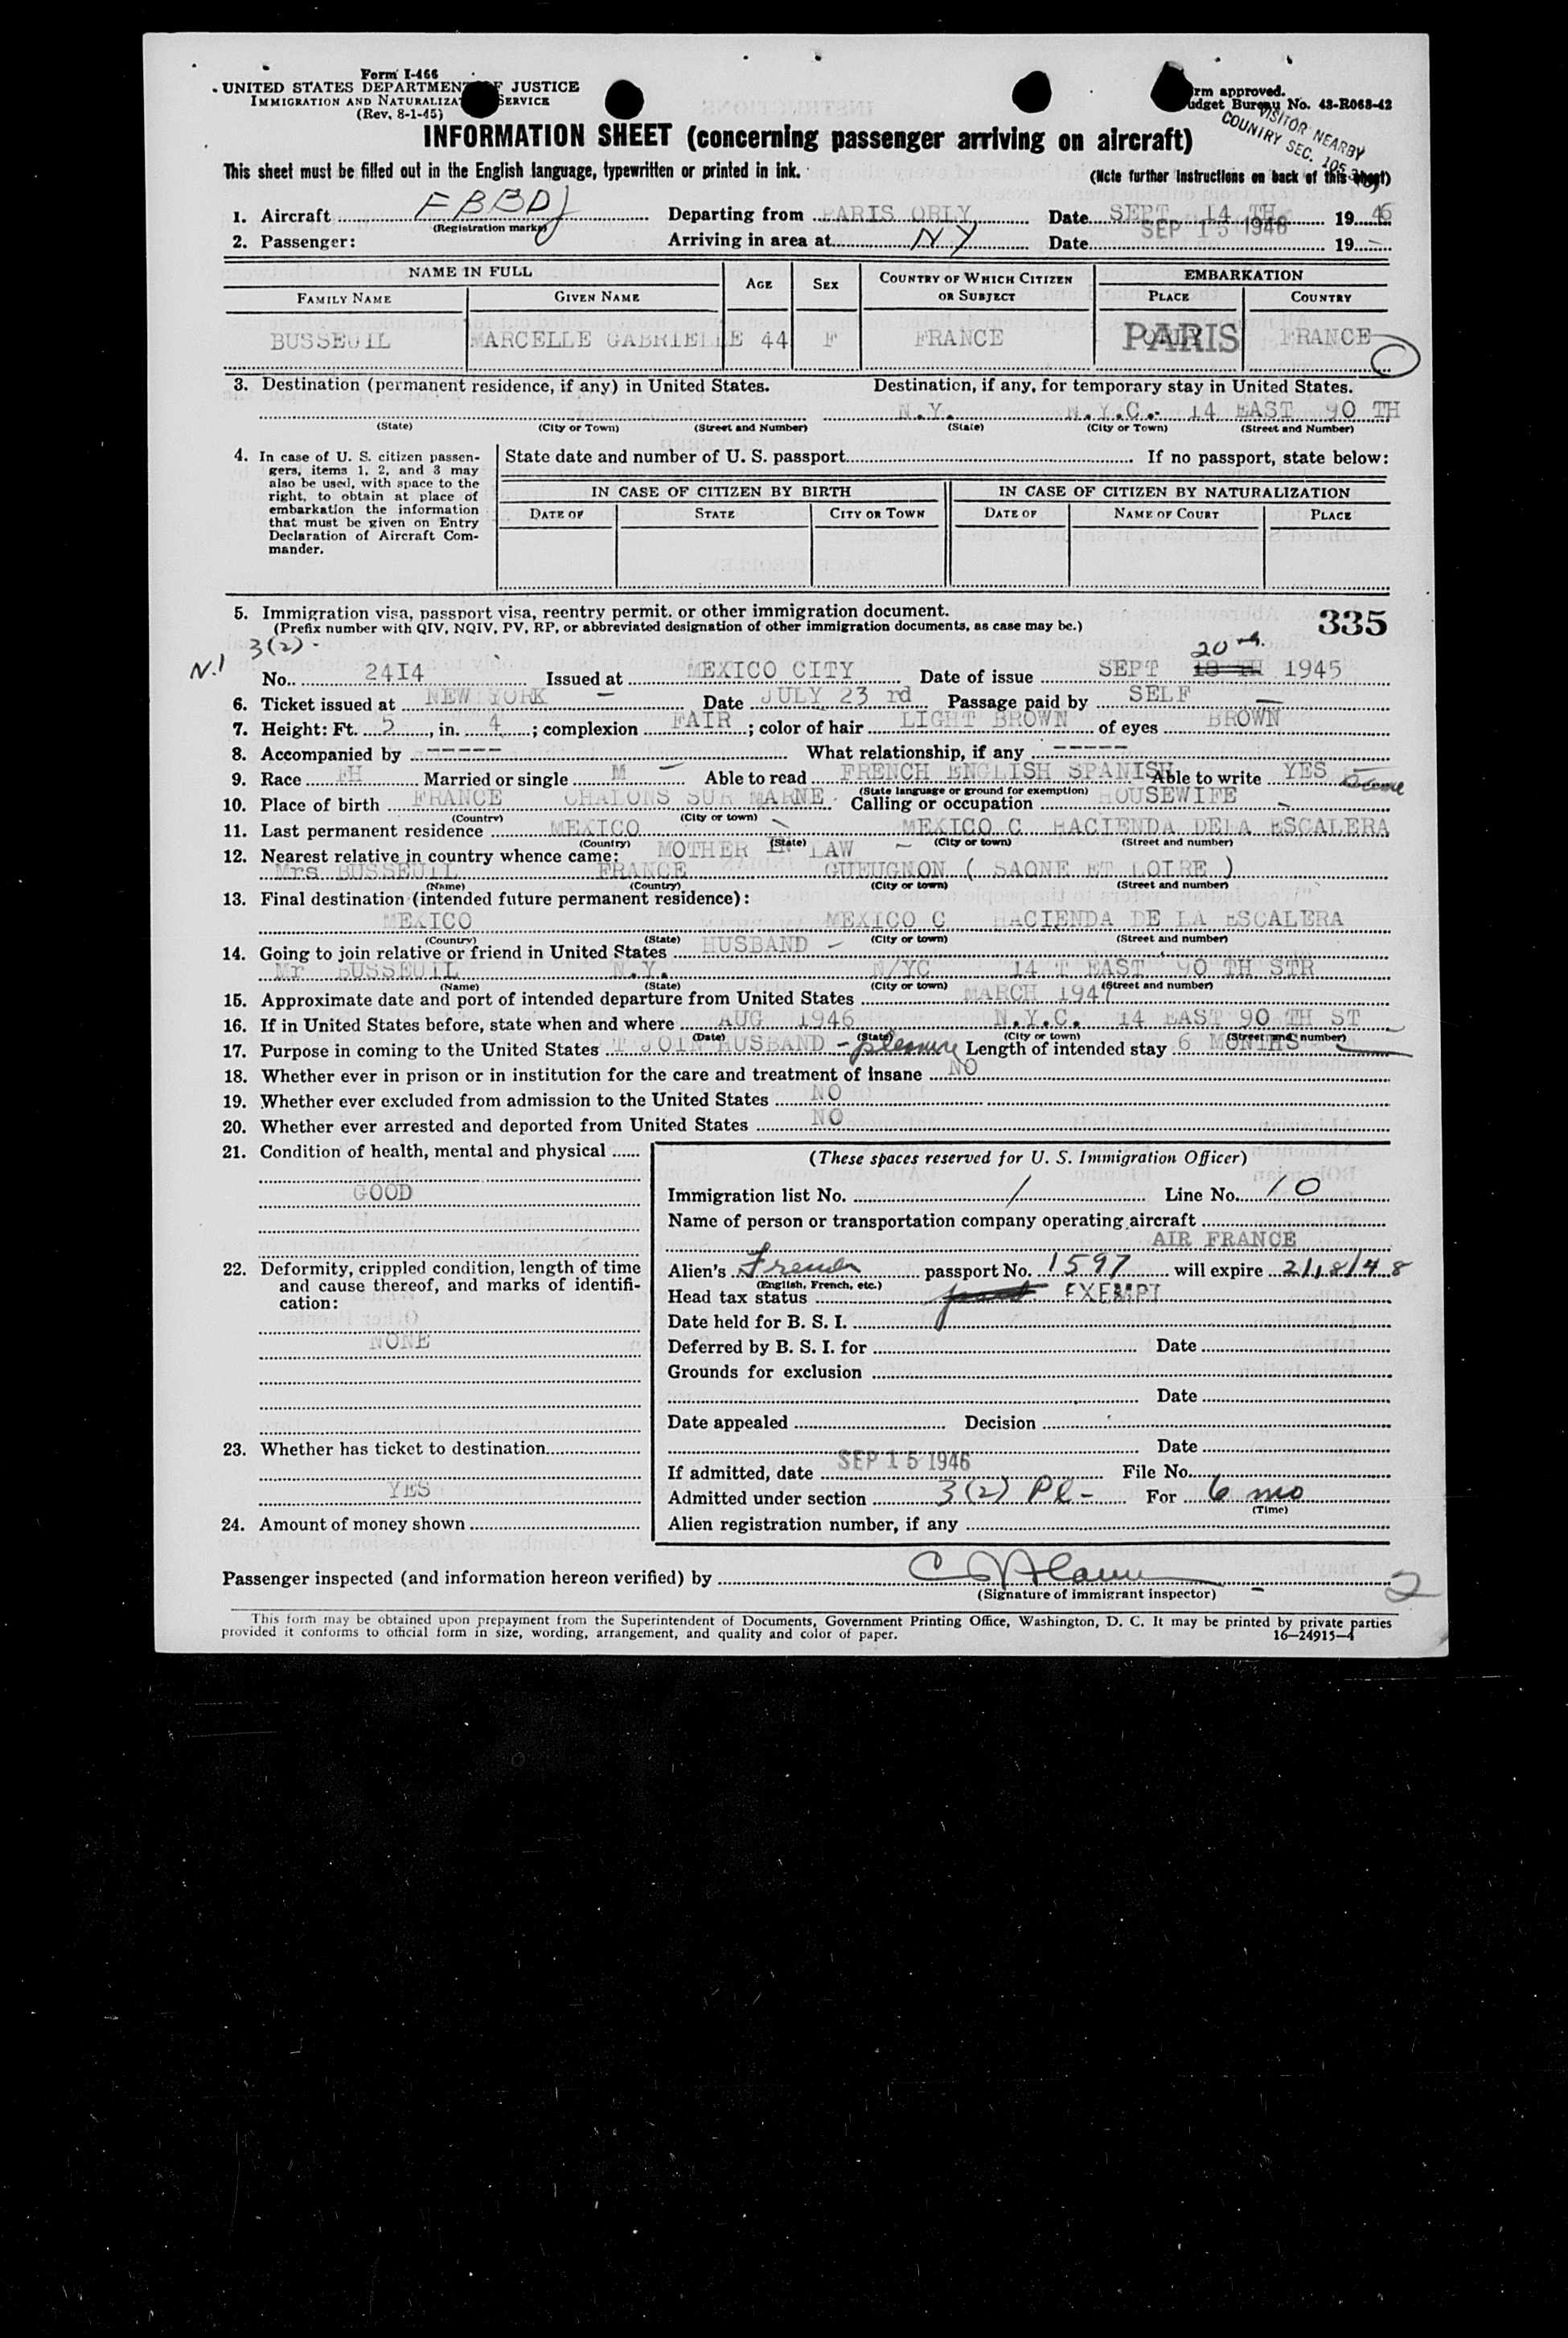 Form I-466
UNITED STATES DEPARTMENT OF JUSTICE
IMMIGRATION AND NATURALIZATION SERVICE
(Rev. 8-1-45)
Form approved.
Budget Bureau No. 43-R063-42
VISITOR NEARBY
COUNTRY SEC.
INFORMATION SHEET (concerning passenger arriving on aircraft)
This sheet must be filled out in the English language, typewritten or printed in ink.
(Note further instructions on back of this sheet)
1. Aircraft FBBDJ Departing from PARIS ORLY Date SEPT 14 TH 19 46
(Registration marks)
2. Passenger: Arriving in area at NY Date SEP 15 1946 19
NAME IN FULL AGE SEX COUNTRY OF WHICH CITIZEN OR SUBJECT EMBARKATION
FAMILY NAME GIVEN NAME PLACE COUNTRY
BUSSEUIL MARCELLE GABRIELLE 44 F FRANCE PARIS FRANCE
3. Destination (permanent residence, if any) in United States. Destination, if any, for temporary stay in United States.
N.Y. N.Y.C.- 14 EAST 90 TH
(State) (City or Town) (Street and Number) (State) (City or Town) (Street and Number)
4. In case of U. S. citizen passen-
gers, items 1, 2, and 3 may
also be used, with space to the
right, to obtain at place of
embarkation the information
that must be given on Entry
Declaration of Aircraft Com-
mander.
State date and number of U. S. passport If no passport, state below:
IN CASE OF CITIZEN BY BIRTH IN CASE OF CITIZEN BY NATURALIZATION
DATE OF STATE CITY OR TOWN DATE OF NAME OF COURT PLACE
5. Immigration visa, passport visa, reentry permit, or other immigration document.
335
(Prefix number with QIV, NQIV, PV, RP, or abbreviated designation of other immigration documents, as case may be.)
3(2)-
20th.
No. 24I4 Issued at MEXICO CITY Date of issue SEPT 18 TH 1945
6. Ticket issued at NEW YORK Date JULY 23 rd Passage paid by SELF
7. Height: Ft. 5, in. 4; complexion FAIR; color of hair LIGHT BROWN of eyes BROWN
8. Accompanied by ----- What relationship, if any -----
9. Race FH Married or single M Able to read FRENCH ENGLISH SPANISH Able to write YES
(State language or ground for exemption)
10. Place of birth FRANCE CHALONS SUR MARNE Calling or occupation HOUSEWIFE
(Country) (City or town)
11. Last permanent residence MEXICO MEXICO C HACIENDA DELA ESCALERA
(Country) (State) (City or town) (Street and number)
12. Nearest relative in country whence came: MOTHER IN LAW
Mrs BUSSEUIL FRANCE GUEUGNON ( SAONE ET LOIRE )
(Name) (Country) (City or town) (Street and number)
13. Final destination (intended future permanent residence):
MEXICO MEXICO C HACIENDA DE LA ESCALERA
(Country) (State) (City or town) (Street and number)
14. Going to join relative or friend in United States HUSBAND -
Mr BUSSEUIL N.Y. N/YC 14 T EAST 90 TH STR
(Name) (State) (City or town) (Street and number)
15. Approximate date and port of intended departure from United States MARCH 1947
16. If in United States before, state when and where AUG 1946 N.Y.C. 14 EAST 90 TH ST
(Date) (State) (City or town) (Street and number)
17. Purpose in coming to the United States T JOIN HUSBAND - pleasure Length of intended stay 6 MONTHS
18. Whether ever in prison or in institution for the care and treatment of insane NO
19. Whether ever excluded from admission to the United States NO
20. Whether ever arrested and deported from United States NO
21. Condition of health, mental and physical
GOOD
22. Deformity, crippled condition, length of time
and cause thereof, and marks of identifi-
cation:
NONE
23. Whether has ticket to destination
YES
24. Amount of money shown
(These spaces reserved for U. S. Immigration Officer)
Immigration list No. 1 Line No. 10
Name of person or transportation company operating aircraft
AIR FRANCE
Alien's French passport No. 1597 will expire 2/18/48
(English, French, etc.)
Head tax status EXEMPT
Date held for B. S. I.
Deferred by B. S. I. for Date
Grounds for exclusion
Date
Date appealed Decision
Date
If admitted, date SEP 15 1946 File No.
Admitted under section 3(2) Pl- For 6 mo
(Time)
Alien registration number, if any
Passenger inspected (and information hereon verified) by
(Signature of immigrant inspector)
2
This form may be obtained upon prepayment from the Superintendent of Documents, Government Printing Office, Washington, D. C. It may be printed by private parties
provided it conforms to official form in size, wording, arrangement, and quality and color of paper.
16—24915-4